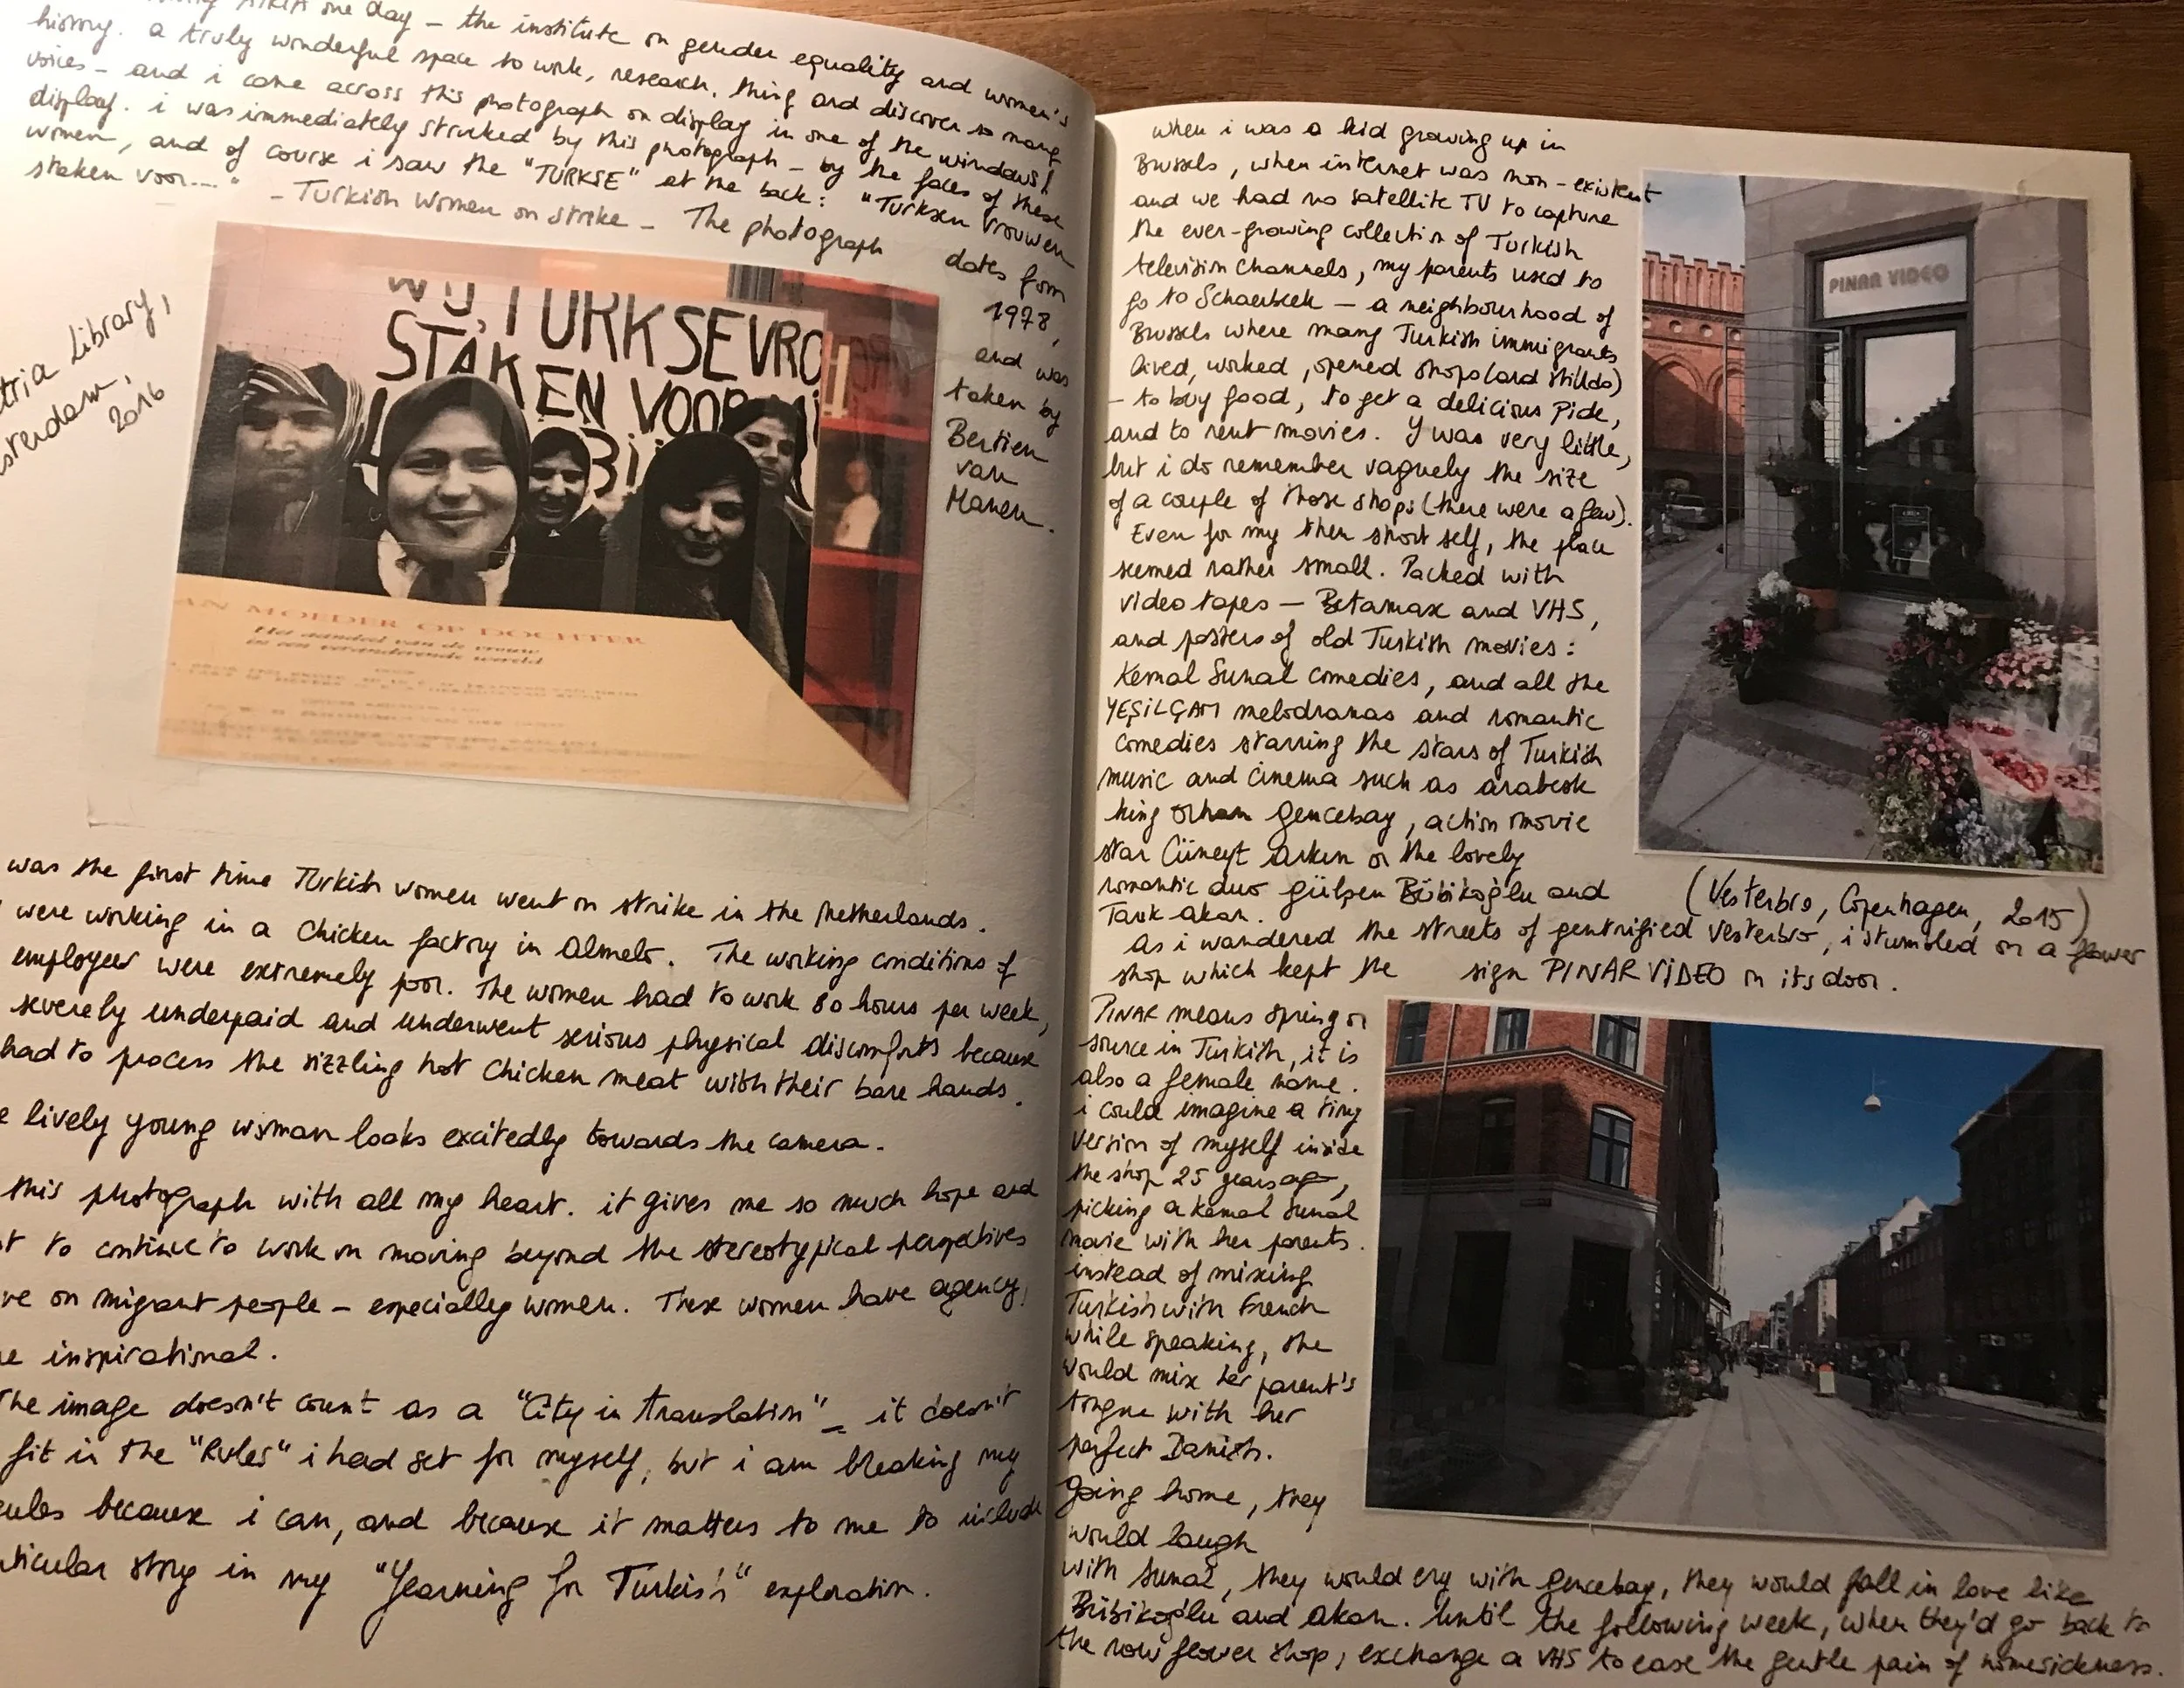 ATRIA one day – the institute on gender equality and women's
history. a truly wonderful space to work, research, thing and discover so many
voices – and i came across this photograph on display in one of the windows!
display. i was immediately strucked by this photograph – by the faces of these
women, and of course i saw the "TURKSE" at the back: "Turksen vrouwen
staken voor...."
– Turkish women on strike – The photograph
dates from
1978,
and was
taken by
Bertien
van
Manen.
Library,
2016
WIJ, TURKSE VRO
STAKEN VOOR
AN MOEDER OP DOCHTER
Het aandeel van de vrouw
in een veranderende wereld
was the first time Turkish women went on strike in the Netherlands.
were working in a chicken factory in Almelo. The working conditions of
employees were extremely poor. The women had to work 80 hours per week,
severely underpaid and underwent serious physical discomforts because
had to process the sizzling hot chicken meat with their bare hands.
lively young woman looks excitedly towards the camera.
this photograph with all my heart. it gives me so much hope and
to continue to work on moving beyond the stereotypical perspectives
on migrant people – especially women. These women have agency,
inspirational.
The image doesn't count as a "City in translation" – it doesn't
fit in the "Rules" i had set for myself, but i am breaking my
rules because i can, and because it matters to me to include
story in my "Yearning for Turkish" exploration.
when i was a kid growing up in
Brussels, when internet was non-existent
and we had no satellite TV to capture
the ever-growing collection of Turkish
television channels, my parents used to
go to Schaerbeek – a neighbourhood of
Brussels where many Turkish immigrants
lived, worked, opened shops (and still do)
– to buy food, to get a delicious pide,
and to rent movies. I was very little,
but i do remember vaguely the size
of a couple of those shops (there were a few).
Even for my then short self, the place
seemed rather small. Packed with
video tapes – Betamax and VHS,
and posters of old Turkish movies:
Kemal Sunal comedies, and all the
YEŞİLÇAM melodramas and romantic
comedies starring the stars of Turkish
music and cinema such as arabesk
king Orhan Gencebay, action movie
star Cüneyt Arkın or the lovely
romantic duo gülşen Bübikoğlu and
Tarık Akan.
PINAR VIDEO
(Vesterbro, Copenhagen, 2015)
As i wandered the streets of gentrified Vesterbro, i stumbled on a flower
shop which kept the sign PINAR VİDEO on its door.
PINAR means spring or
source in Turkish, it is
also a female name.
i could imagine a tiny
version of myself inside
the shop 25 years ago,
picking a Kemal Sunal
movie with her parents.
instead of mixing
Turkish with French
while speaking, she
would mix her parent's
tongue with her
perfect Danish.
Going home, they
would laugh
with Sunal, they would cry with Gencebay, they would fall in love like
Bübikoğlu and Akan. Until the following week, when they'd go back to
the now flower shop, exchange a VHS to ease the gentle pain of homesickness.